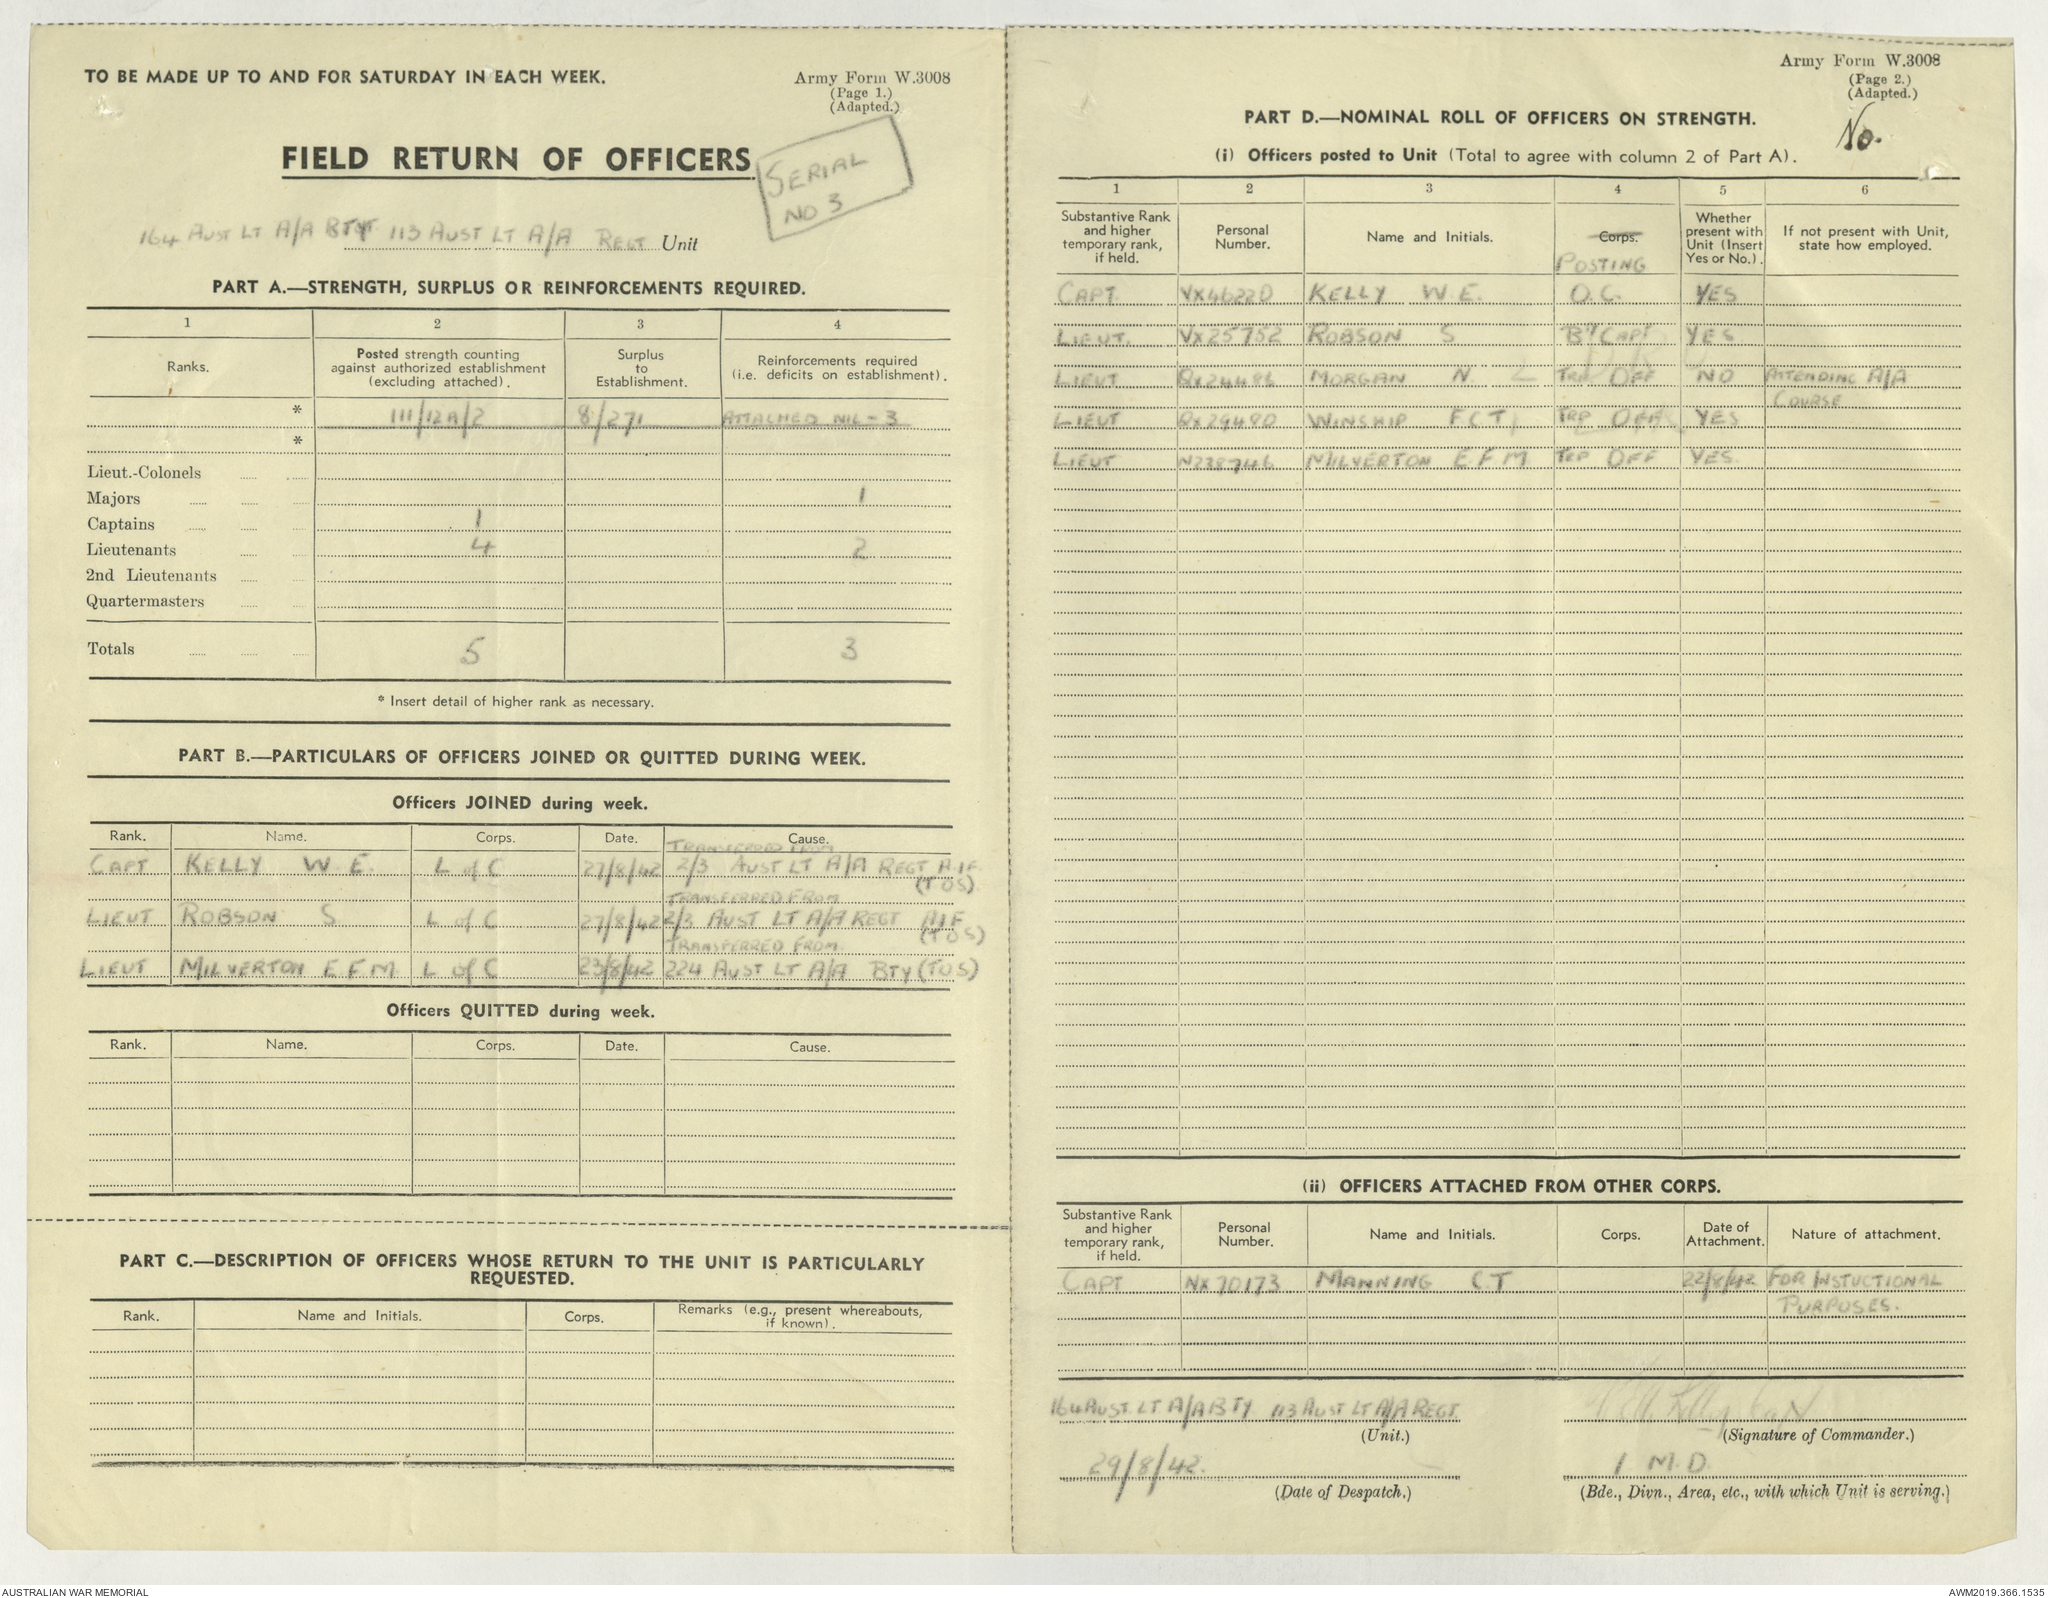 TO BE MADE UP TO AND FOR SATURDAY IN EACH WEEK.
Army Form W.3008
(Page 1.)
(Adapted.)
FIELD RETURN OF OFFICERS
SERIAL
NO 3
164 AUST LT A/A BTY 113 AUST LT A/A REGT Unit
PART A.—STRENGTH, SURPLUS OR REINFORCEMENTS REQUIRED.
1 2 3 4
Ranks. Posted strength counting against authorized establishment (excluding attached). Surplus to Establishment. Reinforcements required (i.e. deficits on establishment).
* 111/12A/2 8/271 ATTACHED NIL-3
*
Lieut.-Colonels
Majors 1
Captains 1
Lieutenants 4 2
2nd Lieutenants
Quartermasters
Totals 5 3
* Insert detail of higher rank as necessary.
PART B.—PARTICULARS OF OFFICERS JOINED OR QUITTED DURING WEEK.
Officers JOINED during week.
Rank. Name. Corps. Date. Cause.
TRANSFERRED FROM
CAPT KELLY W. E. L of C 27/8/42 2/3 AUST LT A/A REGT A.I.F.
(TOS)
TRANSFERRED FROM
LIEUT ROBSON S L of C 27/8/42 2/3 AUST LT A/A REGT AIF
(TOS)
TRANSFERRED FROM
LIEUT MILVERTON E F M L of C 23/8/42 224 AUST LT A/A BTY (TOS)
Officers QUITTED during week.
Rank. Name. Corps. Date. Cause.
PART C.—DESCRIPTION OF OFFICERS WHOSE RETURN TO THE UNIT IS PARTICULARLY
REQUESTED.
Rank. Name and Initials. Corps. Remarks (e.g., present whereabouts, if known).
Army Form W.3008
(Page 2.)
(Adapted.)
No.
PART D.—NOMINAL ROLL OF OFFICERS ON STRENGTH.
(i) Officers posted to Unit (Total to agree with column 2 of Part A).
1 2 3 4 5 6
Substantive Rank and higher temporary rank, if held. Personal Number. Name and Initials. Corps. Whether present with Unit (Insert Yes or No.). If not present with Unit, state how employed.
POSTING
CAPT VX46220 KELLY W. E. O.C. YES
LIEUT. VX25752 ROBSON S BTY CAPT YES
LIEUT MORGAN N. TRP OFF NO ATTENDING A/A
COURSE
LIEUT QX29480 WINSHIP F.C.T TRP OFF YES
LIEUT N238746 MILVERTON E F M TRP OFF YES
(ii) OFFICERS ATTACHED FROM OTHER CORPS.
Substantive Rank and higher temporary rank, if held. Personal Number. Name and Initials. Corps. Date of Attachment. Nature of attachment.
CAPT NX70173 MANNING C T 22/8/42 FOR INSTUCTIONAL
PURPOSES.
164 AUST LT A/A BTY 113 AUST LT A/A REGT
(Unit.) (Signature of Commander.)
29/8/42. 1 M.D.
(Date of Despatch.) (Bde., Divn., Area, etc., with which Unit is serving.)
AUSTRALIAN WAR MEMORIAL
AWM2019.366.1535